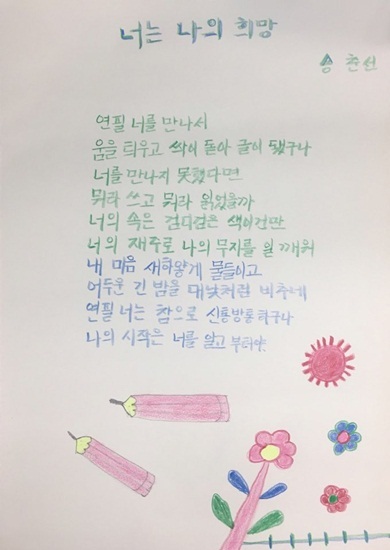 너는 나의 희망
송 춘선
연필 너를 만나서
움을 틔우고 싹이 돋아 글이 됐구나
너를 만나지 못했다면
뭐라 쓰고 뭐라 읽었을까
너의 속은 검디검은 색이건만
너의 재주로 나의 무지를 일깨워
내 마음 새하얗게 물들이고
어두운 긴 밤을 대낮처럼 비추네
연필 너는 참으로 신통방통하구나
나의 시작은 너를 알고 부터야.